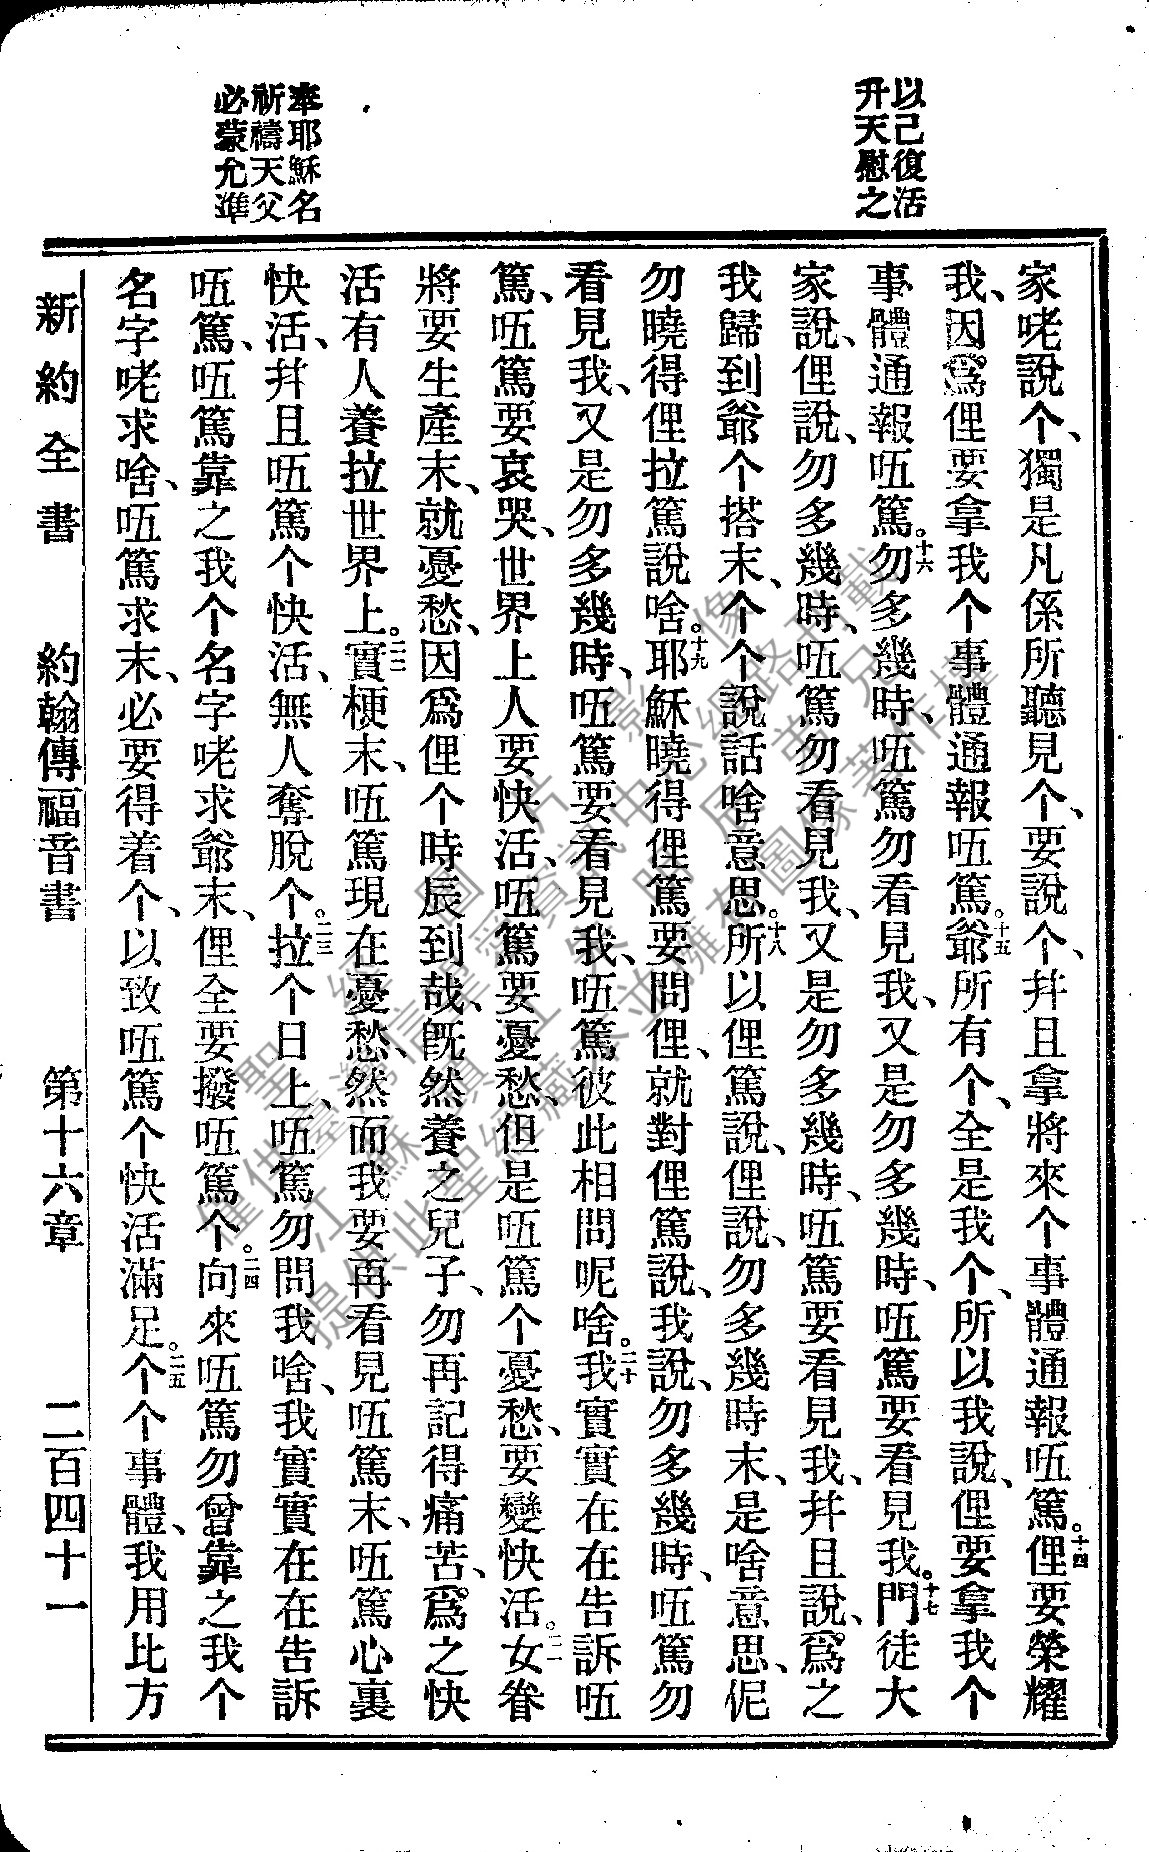 以己復活
升天慰之
奉耶穌名
祈禱天父
必蒙允準
家咾說个、獨是凡係所聽見个、要說个、幷且拿將來个事體通報㑚篤。十四俚要榮耀
我、因爲俚要拿我个事體通報㑚篤。十五爺所有个、全是我个、所以我說、俚要拿我个
事體通報㑚篤。十六勿多幾時、㑚篤勿看見我、又是勿多幾時、㑚篤要看見我。十七門徒大
家說、俚說、勿多幾時、㑚篤勿看見我、又是勿多幾時、㑚篤要看見我、幷且說、爲之
我歸到爺个搭末、个个說話啥意思。十八所以俚篤說、俚說、勿多幾時末、是啥意思、伲
勿曉得俚拉篤說啥。十九耶穌曉得俚篤要問俚、就對俚篤說、我說、勿多幾時、㑚篤勿
看見我、又是勿多幾時、㑚篤要看見我、㑚篤彼此相問呢啥。二十我實實在在告訴㑚
篤、㑚篤要哀哭、世界上人要快活、㑚篤要憂愁、但是㑚篤个憂愁、要變快活。二一女眷
將要生產末、就憂愁、因爲俚个時辰到哉、旣然養之兒子、勿再記得痛苦、爲之快
活有人養拉世界上。二二實梗末、㑚篤現在憂愁、然而我要再看見㑚篤末、㑚篤心裏
快活、幷且㑚篤个快活、無人奪脫个。二三拉个日上、㑚篤勿問我啥、我實實在在告訴
㑚篤、㑚篤靠之我个名字咾求爺末、俚全要撥㑚篤个。二四向來㑚篤勿曾靠之我个
名字咾求啥、㑚篤求末、必要得着个、以致㑚篤个快活滿足。二五个个事體、我用比方
新約全書 約翰傳福音書 第十六章 二百四十一